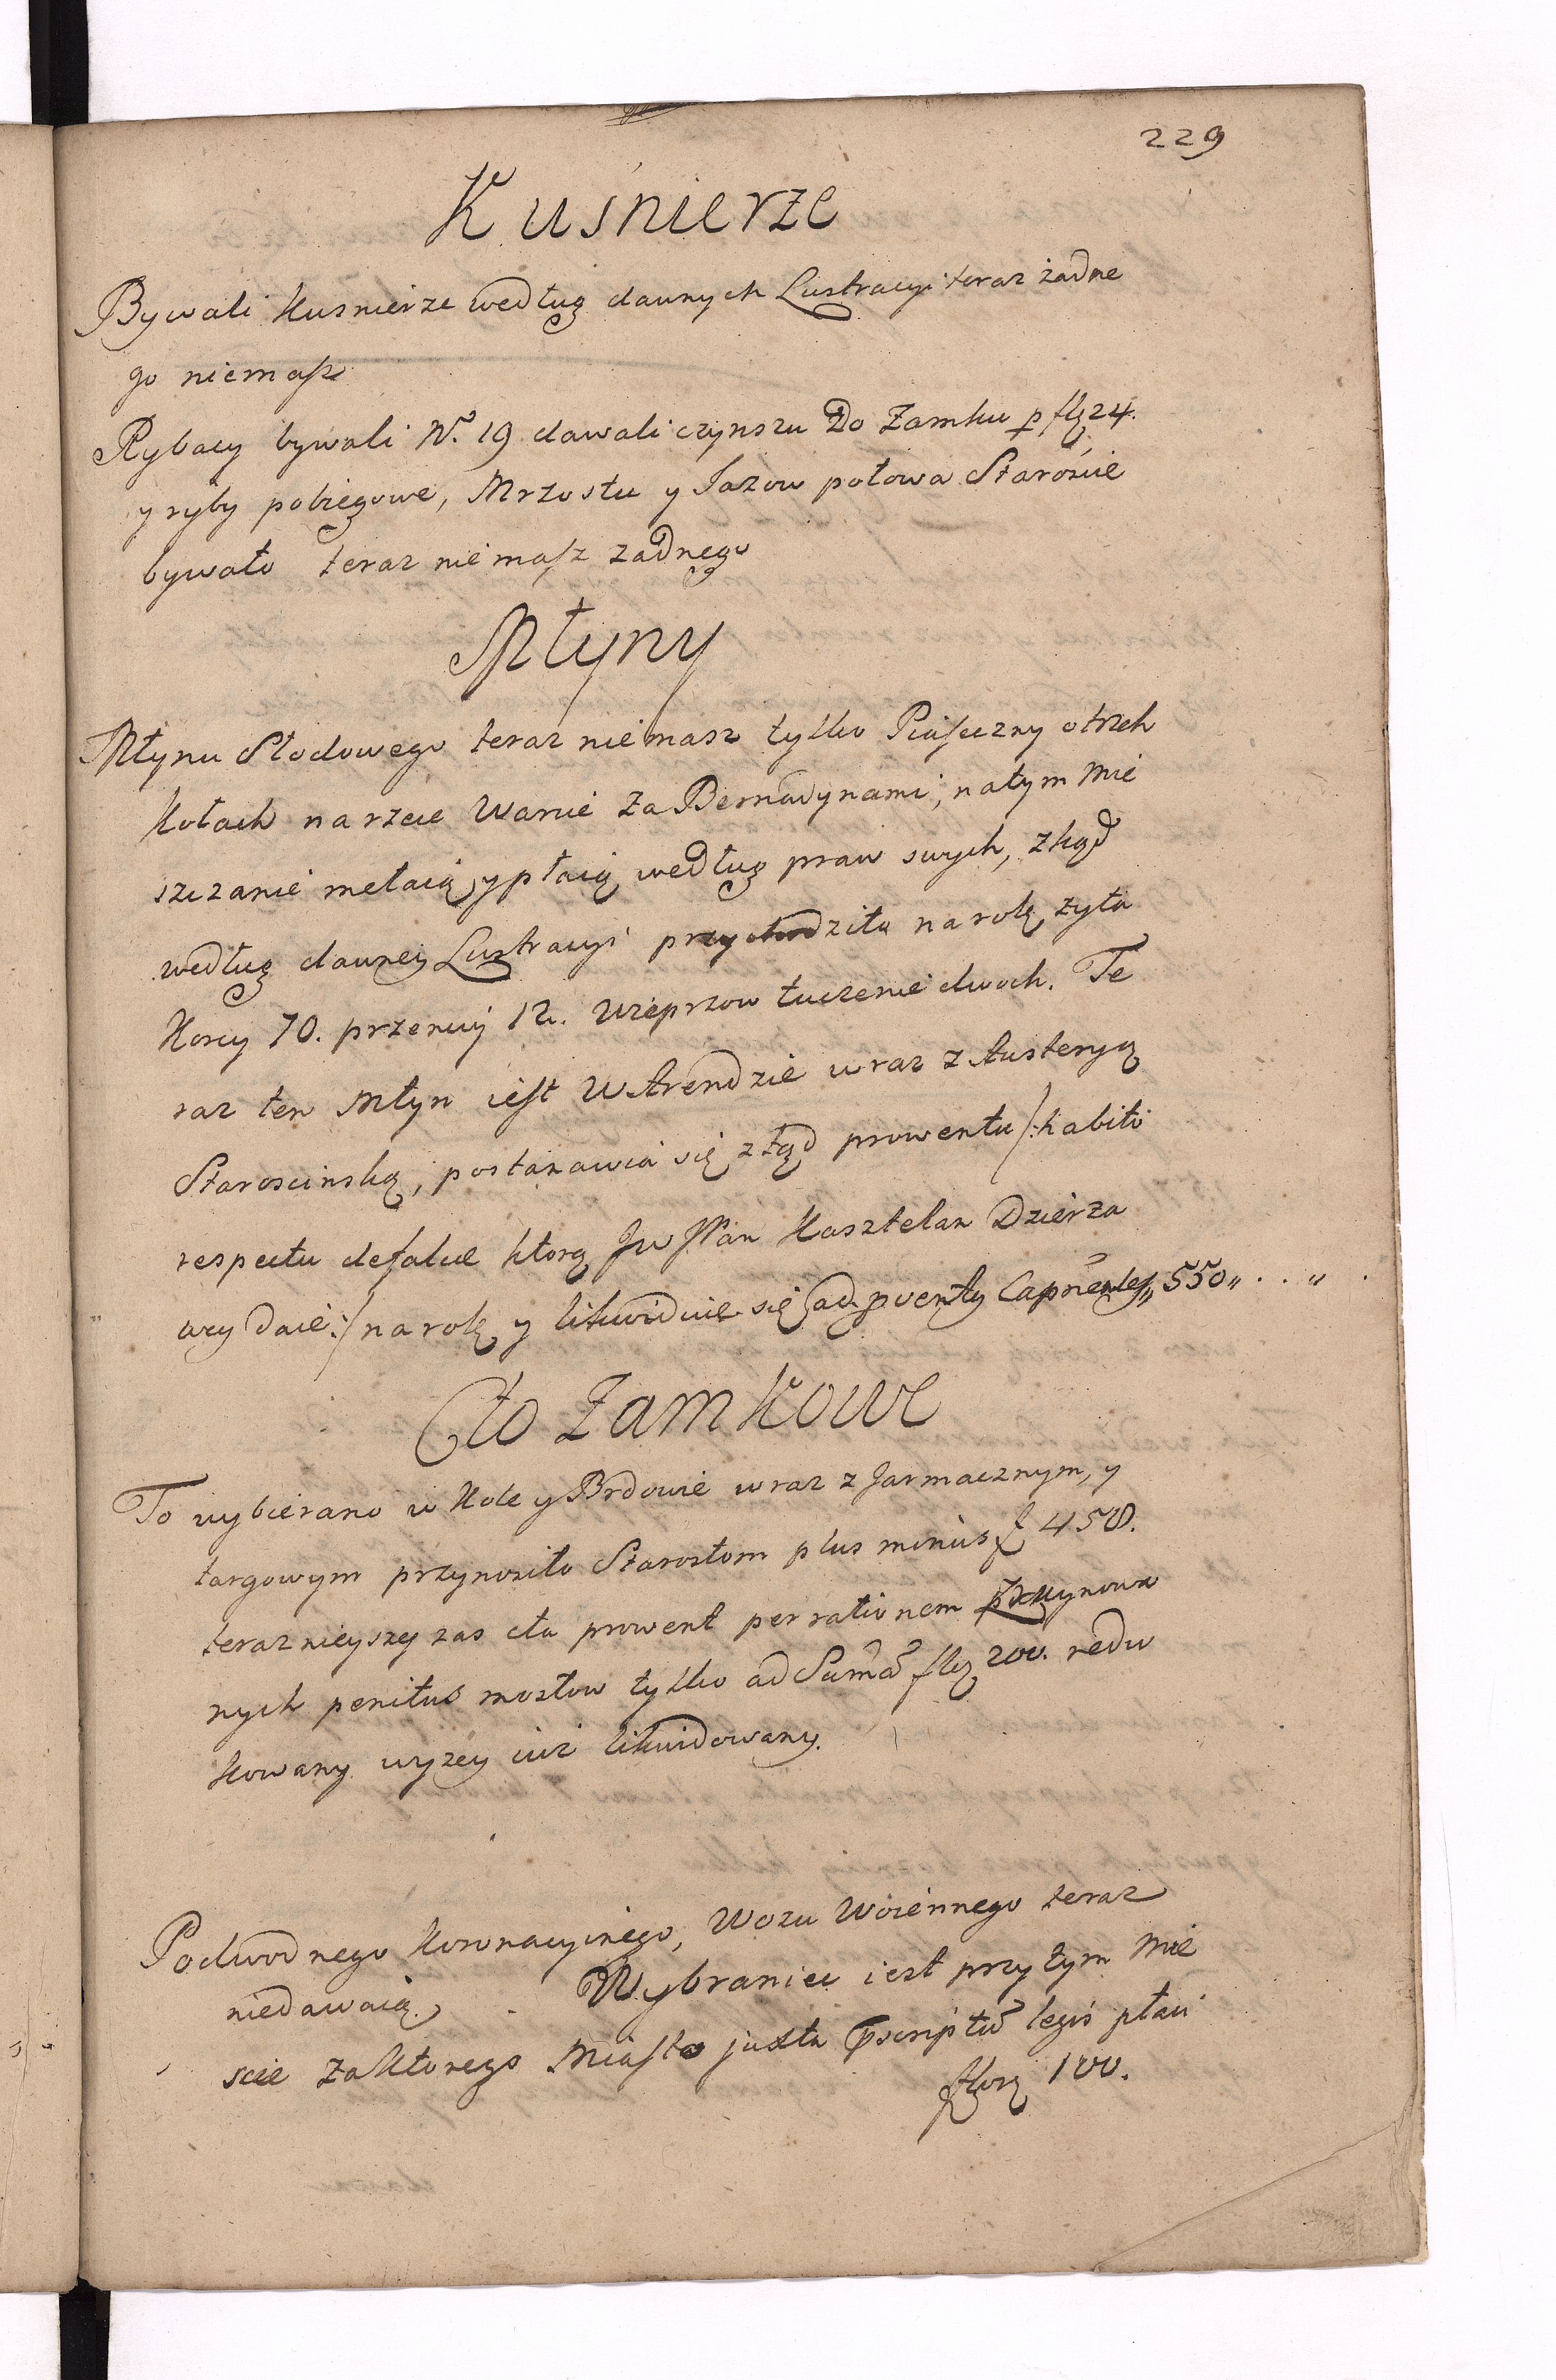 229
Kuśnierze
Bywali Kusnierze według dawnych Lustracyi teraz żadne
go niemasz
Rybacy bywali N.º 19 dawali czynszu Do Zamku p flꝫ 24.
y ryby pobiegowe, Mrzostu y Jazow połowa Starośie
bywało teraz niemasz zadnego
Młyny
Młynu Słodowego teraz niemasz tylko Piaseczny o trzech
Kołach na rzece Warcie Za Bernadynami, na tym Mie
szczanie melaią y płacą według praw swych, zkąd
według dawney Lustracyi przychodziło na rok żyta
Korcy 70. przenicy 12. Wieprzow tuczenie dwoch. Te
raz ten Młyn iest W Arendzie wraz z Austeryą
Staroscinską, postanawia się ztąd prowentu /: habito
respectu defalce ktorą Jw JPan Kasztelan Dzierza
wcy Daie :/ na rok y likwiduie się ad proventy Capnēles „ 550 „ . . „ .
Cło Zamkowe
To wybierano w Kole y Brdowie wraz z Jarmacznym, y
targowym przynosiło Starostom plus minus f 450.
teraznieyszey zas cła prowent per rationem
nych penitus mostow tylko ad Sumā flꝫ 200. redu
kowany wyzey iuż likwidowany.
Podwodnego Koronacyinego, Wozu Woiennego teraz
niedawaią. Wybraniec iest przy tym Mie
scie za ktorego Miasto juxta pscriptū legis płaci
florꝫ 100.